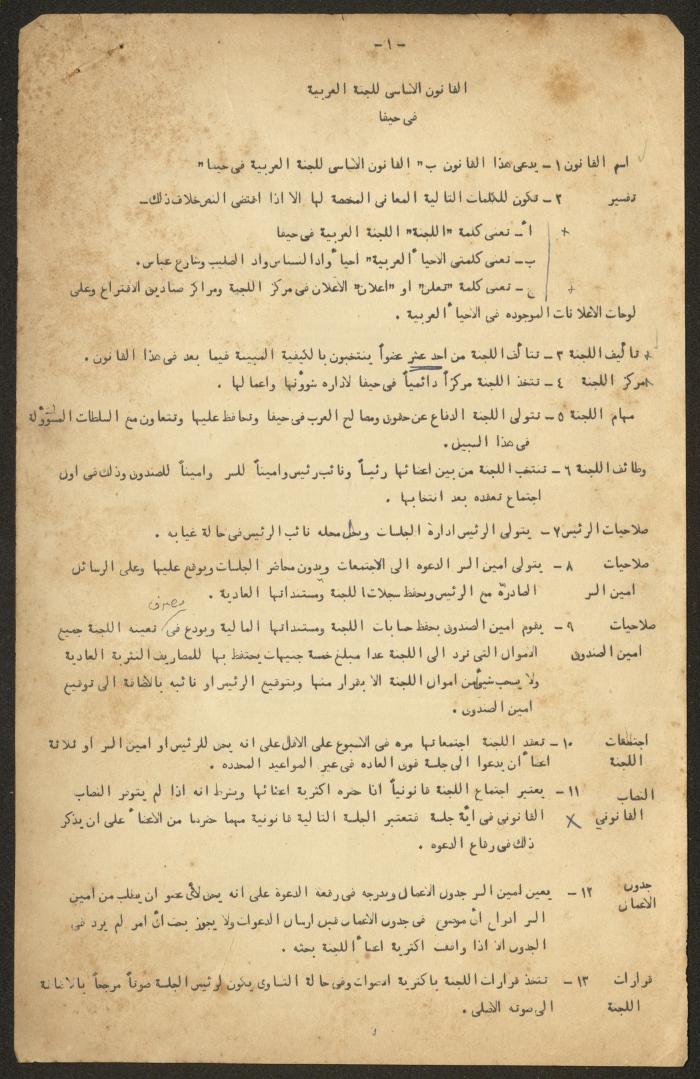 -١-
القانون الاساسي للجنة العربية
في حيفا
اسم القانون ١- يدعى هذا القانون ب" القانون الاساسي للجنة العربية في حيفا"
تفسير ٢- تكون للكلمات التالية المعاني المخصصة لها الا اذا اقتضى النص خلاف ذلك-
أ- تعني كلمة "اللجنة" اللجنة العربية في حيفا
ب- تعني كلمتي الاحياء العربية" احياء وادالنسناس واد الصليب وشارع عباس.
ج- تعني كلمة "تعلن" او "اعلان" الاعلان في مركز اللجنة ومراكز صناديق الاقتراع وعلى
لوحات الاعلانات الموجوده في الاحياء العربية .
تأليف اللجنة ٣- تتألف اللجنة من احد عشر عضواً ينتخبون بالكيفية المبينة فيما بعد في هذا القانون .
مركز اللجنة ٤- تتخذ اللجنة مركزاً دائمياً في حيفا لاداره شؤونها واعمالها .
مهام اللجنة ٥- تتولى اللجنة الدفاع عن حقوق ومصالح العرب في حيفا وتحافظ عليها وتتعاون مع السلطات المسؤولة
في هذا السبيل.
وظائف اللجنة ٦- تنتخب اللجنة من بين اعضائها رئيساً ونائب رئيس واميناً للسر واميناً للصندوق وذلك في اول
اجتماع تعقده بعد انتخابها .
صلاحيات الرئيس ٧- يتولى الرئيس ادارة الجلسات ويحل محله نائب الرئيس في حالة غيابه .
صلاحيات ٨- يتولى امين السر الدعوه الى الاجتمعات ويدون محاضر الجلسات ويوقع عليها وعلى الرسائل
امين السر الصادرة مع الرئيس ويحفظ سجلات اللجنة ومستنداتها العادية .
مصرف
صلاحيات ٩- يقوم امين الصندوق بحفظ حسابات اللجنة ومستنداتها المالية ويودع في تعينه اللجنة جميع
امين الصندوق الاموال التي ترد الى اللجنة عدا مبلغ خمسة جنيهات يحتفظ بها للمصاريف النثرية العادية
ولا يسحب شيئ من اموال اللجنة الا بقرار منها وبتوقيع الرئيس او نائبه بالاضافة الى توقيع
امين الصندوق .
اجتمعات ١٠- تعقد اللجنة اجتمعاتها مره في الاسبوع على الاقل على انه يحق للرئيس او امين السر او ثلاثة
اللجنة اعضاء ان يدعوا الى جلسة فوق العاده في غير المواعيد المحدده .
النصاب ١١- يعتبر اجتماع اللجنة قانونياً اذا حضره اكثرية اعضائها ويشترط انه اذا لم يتوفر النصاب
القانوني القانوني في اية جلسة فتعتبر الجلسة التالية قانونية مهما حضرها من الاعضاء على ان يذكر
ذلك في رقاع الدعوه .
جدول ١٢- يعين امين السر جدول الاعمال ويدرجه في رقعة الدعوة على انه يحق لأي عضو ان يطلب من امين
الاعمال السر ادراج اي موضوع في جدول الاعمال قبل ارسال الدعوات ولا يجوز بحث اي امر لم يرد في
الجدول الا اذا وافقت اكثرية اعضاء اللجنة بحثه .
قرارات ١٣- تتخذ قرارات اللجنة باكثرية الاصوات وفي حالة التساوي يكون لرئيس الجلسة صوتاً مرجحاً بالاضافة
اللجنة الى صوته الاصلي .